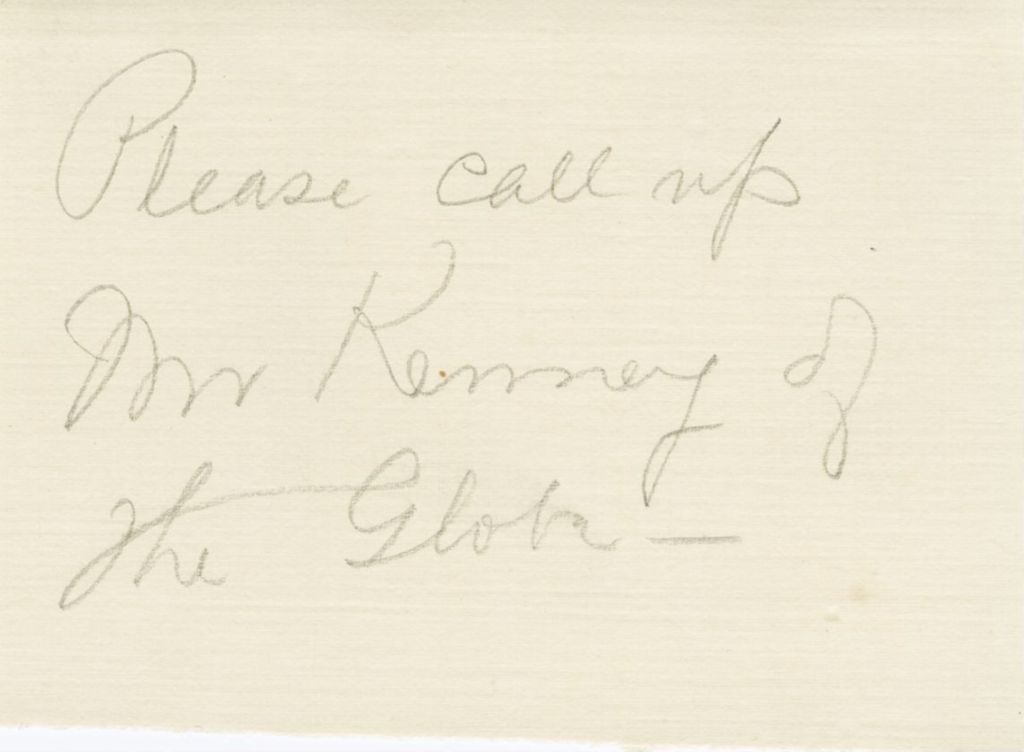 Please call up
Mr Kenney of
The Globe —